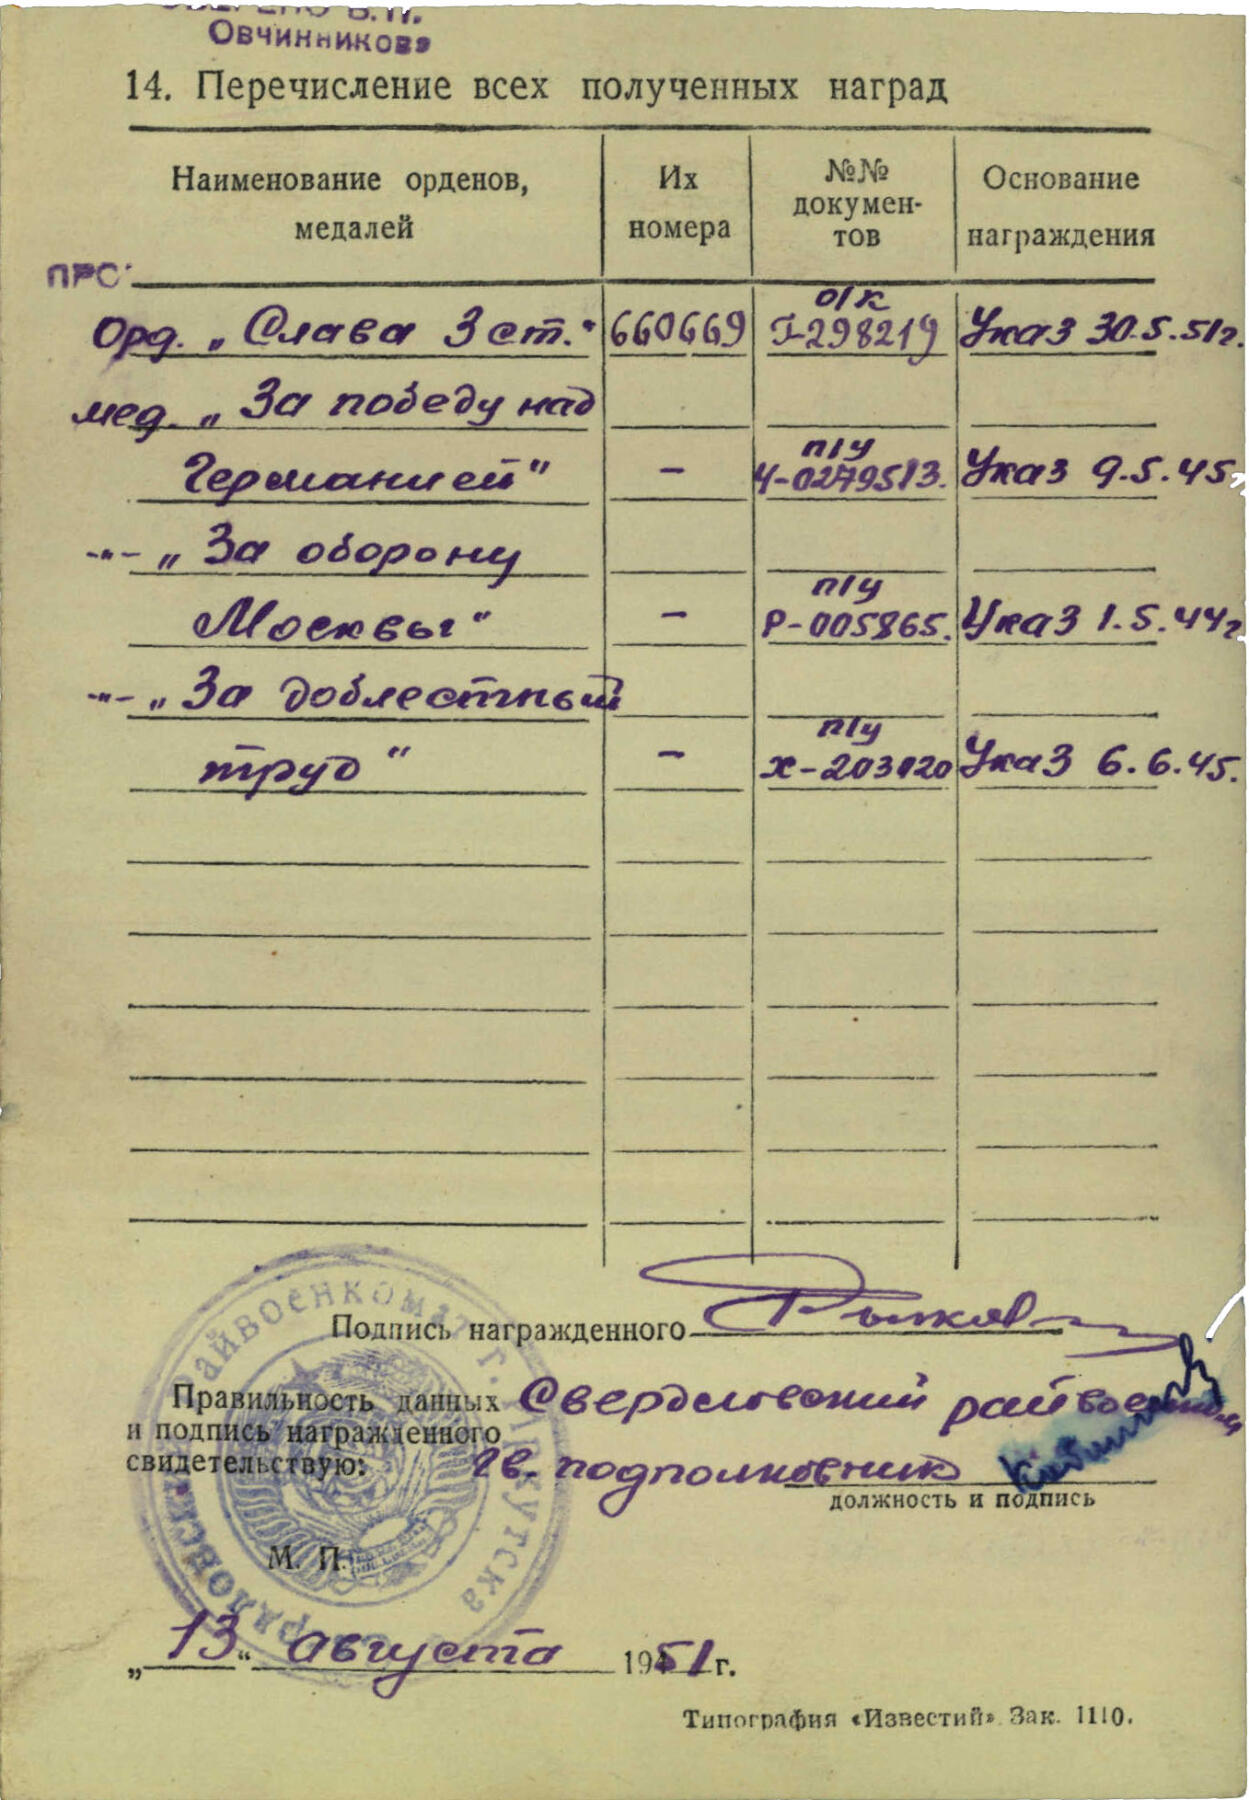 Овчинникова
14. Перечисление всех полученных наград
Наименование орденов, медалей
Их номера
№№ докумен-тов
Основание награждения
ПРО
Орд. „Слава 3 ст." 660669 о/к Г-298219 Указ 30.5.51г.
мед. „За победу над
Германией" - п/у Ч-0279513. Указ 9.5.45
-"- „За оборону
Москвы" - п/у Р-005865. Указ 1.5.44г
-"- „За доблестный
труд" - п/у Х-203120 Указ 6.6.45.
Подпись награжденного Рыков
Правильность данных Свердловский райвоенком
и подпись награжденного
свидетельствую: Гв. подполковник
должность и подпись
М. П.
Свердловский райвоенкомат г. Иркутска
„13" августа 1951 г.
Типография «Известий» Зак. 1110.